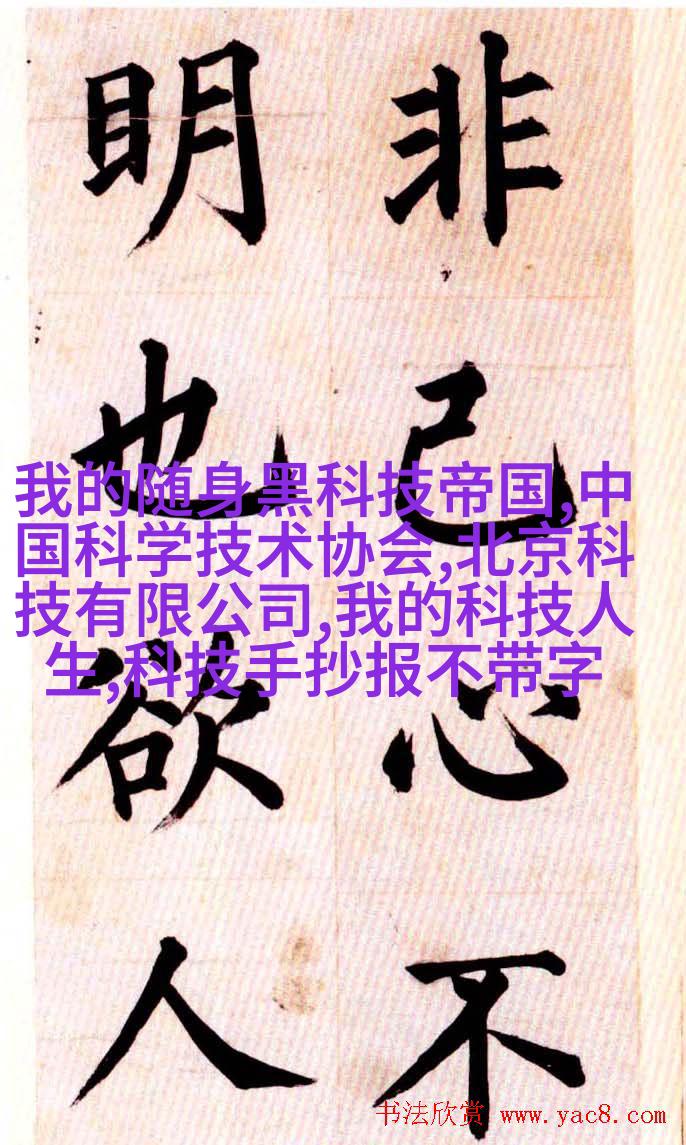 非己心不
明也欲人
我的随身黑科技帝国,中
国科学技术协会,北京科
技有限公司,我的科技人
生,科技手抄报不带字
书法欣赏 www.yac8.com